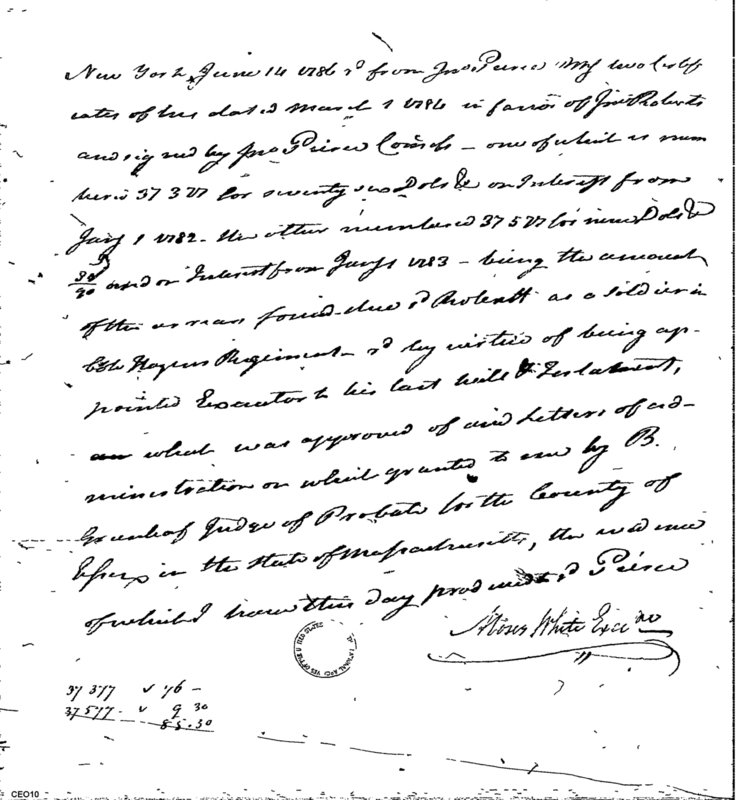 New York June 14 1786 rd from Jno Pierce Esq two certif
icates of his dated March 1 1784 in favor of Jno Roberts
and signed by Jno Pierce Comisr - one of which is num
bered 37377 for seventy six Dols & on Interest from
Jany 1 1782 - the other numbered 37577 for nine Dols &
30/90 and on Interest from Jany 1 1783 - being the amount
of the arrears found due sd Roberts as a Soldier in
Regiment - rd by virtue of being ap-
pointed Executor to his last will & Testament,
which was approved of and Letters of ad-
ministration on which granted to me by B.
Greenleaf Judge of Probate for the County of
Essex in the State of Massachusetts, the evidence
of which I have this day produced sd Pierce
Moses White
37377 ✓ 76 -
37577 - ✓ 9 30
85.30
CEO10